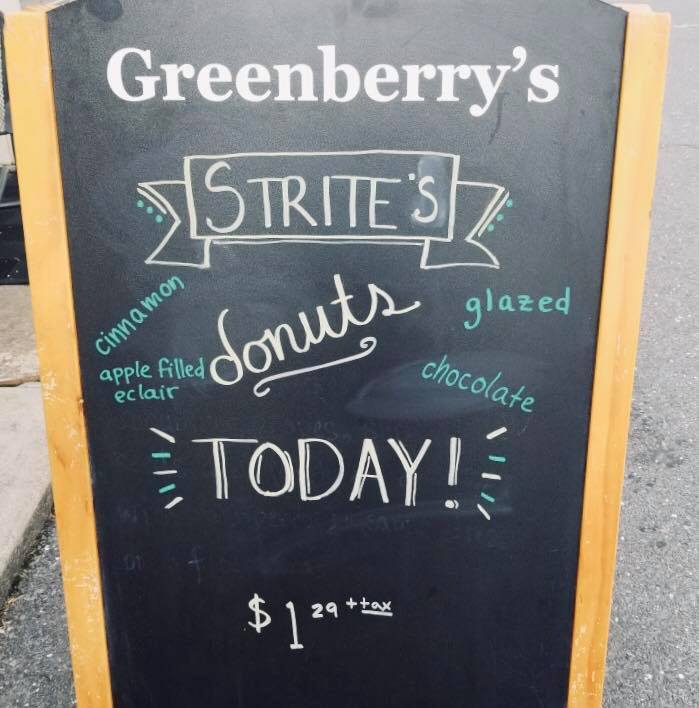 Greenberry's
STRITE'S
cinnamon
donuts
glazed
apple filled
eclair
chocolate
TODAY!
$1 29 + tax